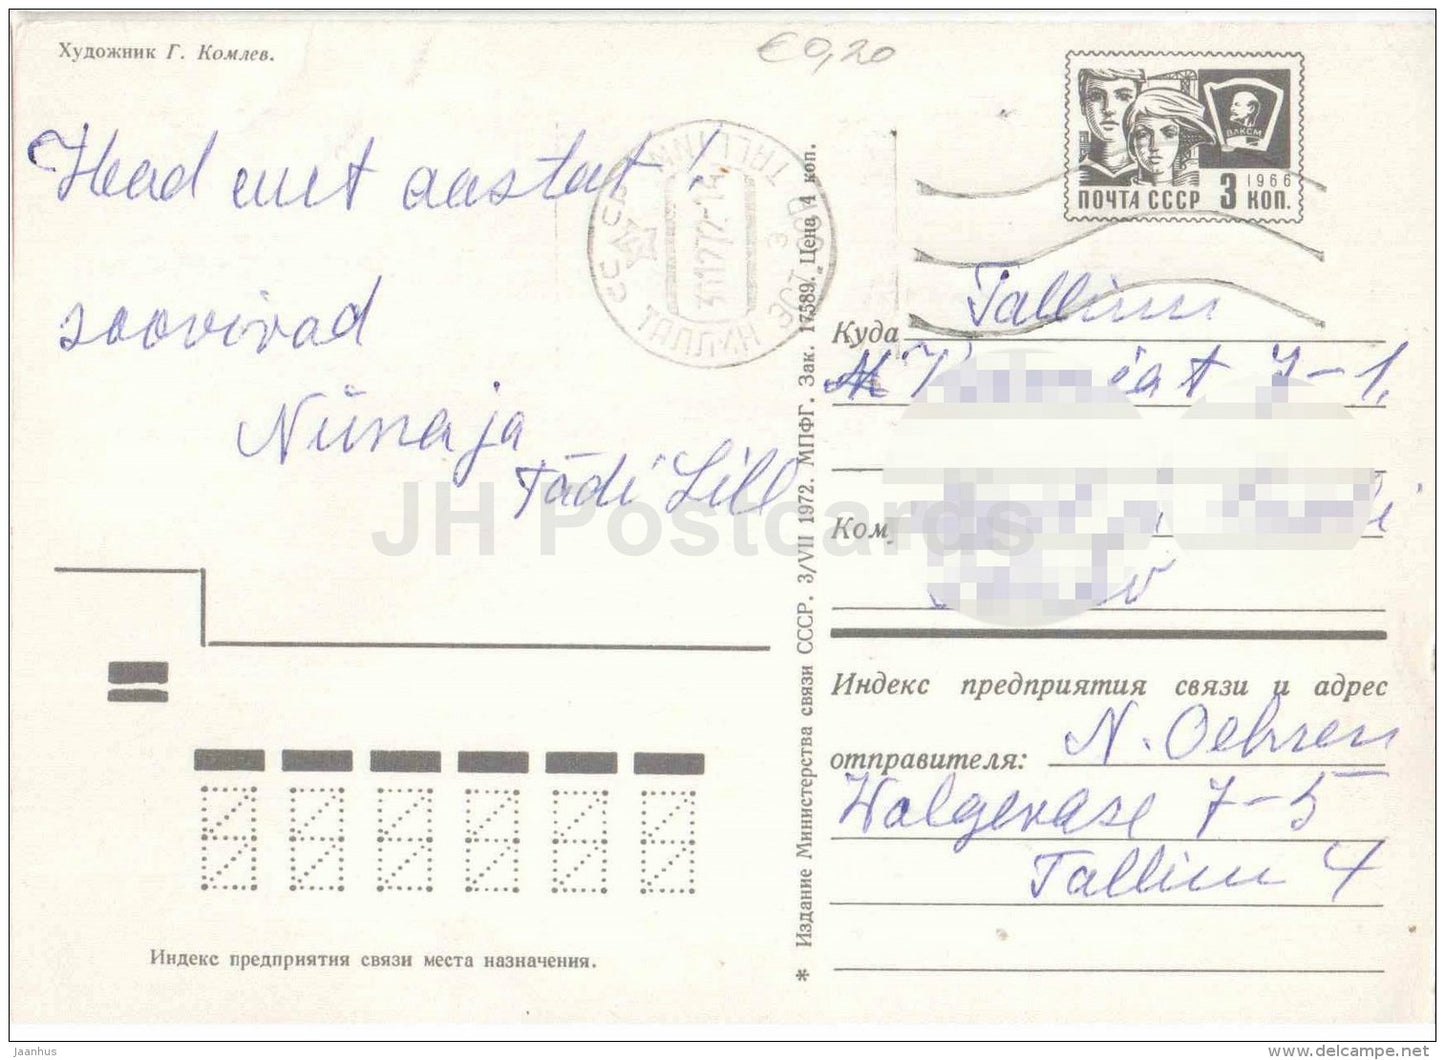 Художник Г. Комлев.
€0,20
Head uut aastat!
soovivad
Niina ja
Tädi Lill
TALLINN
ТАЛЛИН
ПОЧТА СССР 3 КОП.
1966
ВЛКСМ
Куда Tallinn
7-1.
Индекс предприятия связи и адрес
отправителя: N. Oebren
Walgevase 7-5
Tallinn 4
* Издание Министерства связи СССР. 3/VII 1972. МПФГ. Зак. 17589. Цена 4 коп.
Индекс предприятия связи места назначения.
JH Postcards
jaanhus
www.delcampe.net